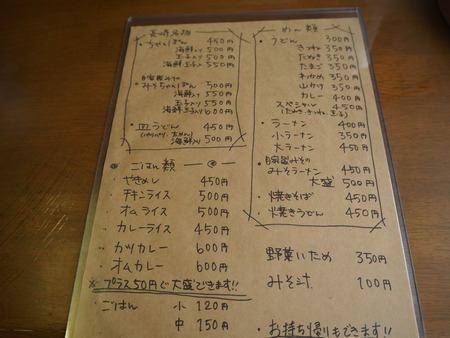 長崎名物
・ちゃんぽん 450円
海鮮入り 500円
玉子入り 500円
海鮮玉子入り 550円
・自家製みその
みそちゃんぽん 500円
海鮮入り 550円
玉子入り 550円
海鮮玉子入り 600円
・皿うどん 450円
海鮮入り 500円
ごはん類
・やきめし 450円
・チキンライス 500円
・オムライス 500円
・カレーライス 450円
・カツカレー 600円
・オムカレー 600円
※プラス50円で大盛できます!!
・ごはん 小 120円
中 150円
めん類
・うどん 300円
きつね 350円
たぬき 350円
たまご 350円
わかめ 350円
山かけ 350円
カレー 400円
スペシャル 450円
(たぬき、きつね、玉子)
・ラーメン 400円
・小ラーメン 350円
・大ラーメン 450円
・自家製みその
みそラーメン 450円
大盛 500円
・焼きそば 450円
・焼きうどん 450円
野菜いため 350円
みそ汁 100円
・お持ち帰りもできます!!